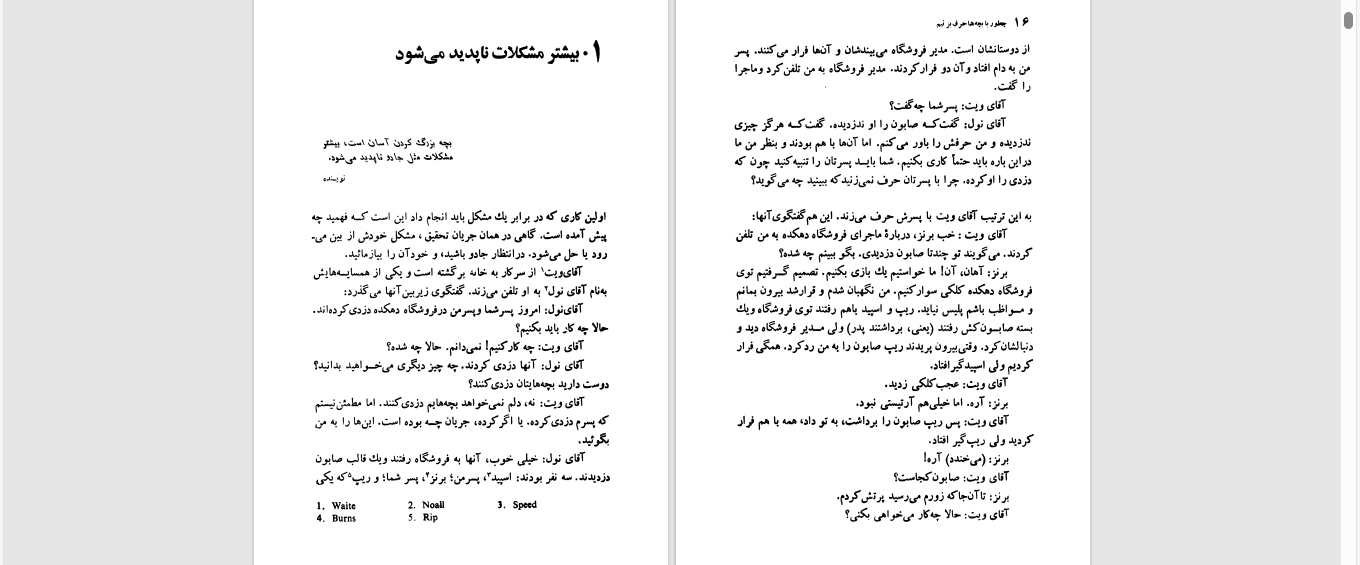 ۰۱ بیشتر مشکلات ناپدید می‌شود
بچه بزرگ کردن آسان است، بیشتر
مشکلات مثل جادو ناپدید می‌شود.
نویسنده
اولین کاری که در برابر یك مشکل باید انجام داد این است کـه فهمید چه
پیش آمده است. گاهی در همان جریان تحقیق، مشکل خودش از بین می‌ـ
رود یا حل می‌شود. درانتظار جادو باشید، و خودآن را بیازمائید.
آقای‌ویت۱ از سرکار به خانه برگشته است و یکی از همسایـه‌هایش
به‌نام آقای نول۲ به او تلفن می‌زند. گفتگوی زیربین‌آنها می‌گذرد:
آقای‌نول: امروز پسرشما وپسرمن درفروشگاه دهکده دزدی‌کرده‌اند.
حالا چه کار باید بکنیم؟
آقای ویت: چه کارکنیم! نمی‌دانم. حالا چه شده؟
آقای نول: آنها دزدی کردند. چه چیز دیگری می‌خـواهید بدانید؟
دوست دارید بچه‌هایتان دزدی‌کنند؟
آقای ویت: نه، دلم نمی‌خواهد بچه‌هایم دزدی‌کنند. اما مطمئن‌نیستم
که پسرم دزدی‌کرده. یا اگرکرده، جریان چـه بوده است. این‌ها را به من
بگوئید.
آقای نول: خیلی خوب، آنها به فروشگاه رفتند ویك قالب صابون
دزدیدند. سه نفر بودند: اسپید۳، پسرمن؛ برنز۴، پسر شما؛ و ریپ۵که یکی
1. Waite 2. Noall 3. Speed
4. Burns 5. Rip
۱۶ چطور با بچه‌ها حرف بزنیم
از دوستانشان است. مدیر فروشگاه می‌بیندشان و آن‌ها فرار می‌کنند. پسر
من به دام افتاد وآن دو فرارکردند. مدیر فروشگاه به من تلفن‌کرد وماجرا
را گفت.
آقای ویت: پسرشما چه‌گفت؟
آقای نول: گفت‌کـه صابون را او ندزدیده. گفت‌کـه هرگز چیزی
ندزدیده و من حرفش را باور می‌کنم. اما آن‌ها با هم بودند و بنظر من ما
دراین باره باید حتماً کاری بکنیم. شما بایـد پسرتان را تنبیه‌کنید چون که
دزدی را اوکرده. چرا با پسرتان حرف نمی‌زنیدکه ببینید چه می‌گوید؟
به این ترتیب آقای ویت با پسرش حرف می‌زند. این هم‌گفتگوی‌آنها:
آقای ویت : خب برنز، دربارهٔ ماجرای فروشگاه دهکده به من تلفن
کردند. می‌گویند تو چندتا صابون دزدیدی. بگو ببینم چه شده؟
برنز: آهان، آن! ما خواستیم یك بازی بکنیم. تصمیم گـرفتیم توی
فروشگاه دهکده کلکی سوارکنیم. من نگهبان شدم و قرارشد بیرون بمانم
و مـواظب باشم پلیس نیاید. ریپ و اسپید باهم رفتند توی فروشگاه ویك
بسته صابـون‌کش رفتند (یعنی، برداشتند پدر) ولی مـدیر فروشگاه دید و
دنبالشان‌کرد. وقتی‌بیرون پریدند ریپ صابون را به من ردکرد. همگی فرار
کردیم ولی اسپیدگیرافتاد.
آقای ویت: عجب‌کلکی زدید.
برنز: آره. اما خیلی‌هم آرتیستی نبود.
آقای ویت: پس ریپ صابون را برداشت، به تو داد، همه با هم فرار
کردید ولی ریپ‌گیر افتاد.
برنز: (می‌خندد) آره!
آقای ویت: صابون‌کجاست؟
برنز: تاآن‌جاکه زورم می‌رسید پرتش‌کردم.
آقای ویت: حالا چه‌کار می‌خواهی بکنی؟